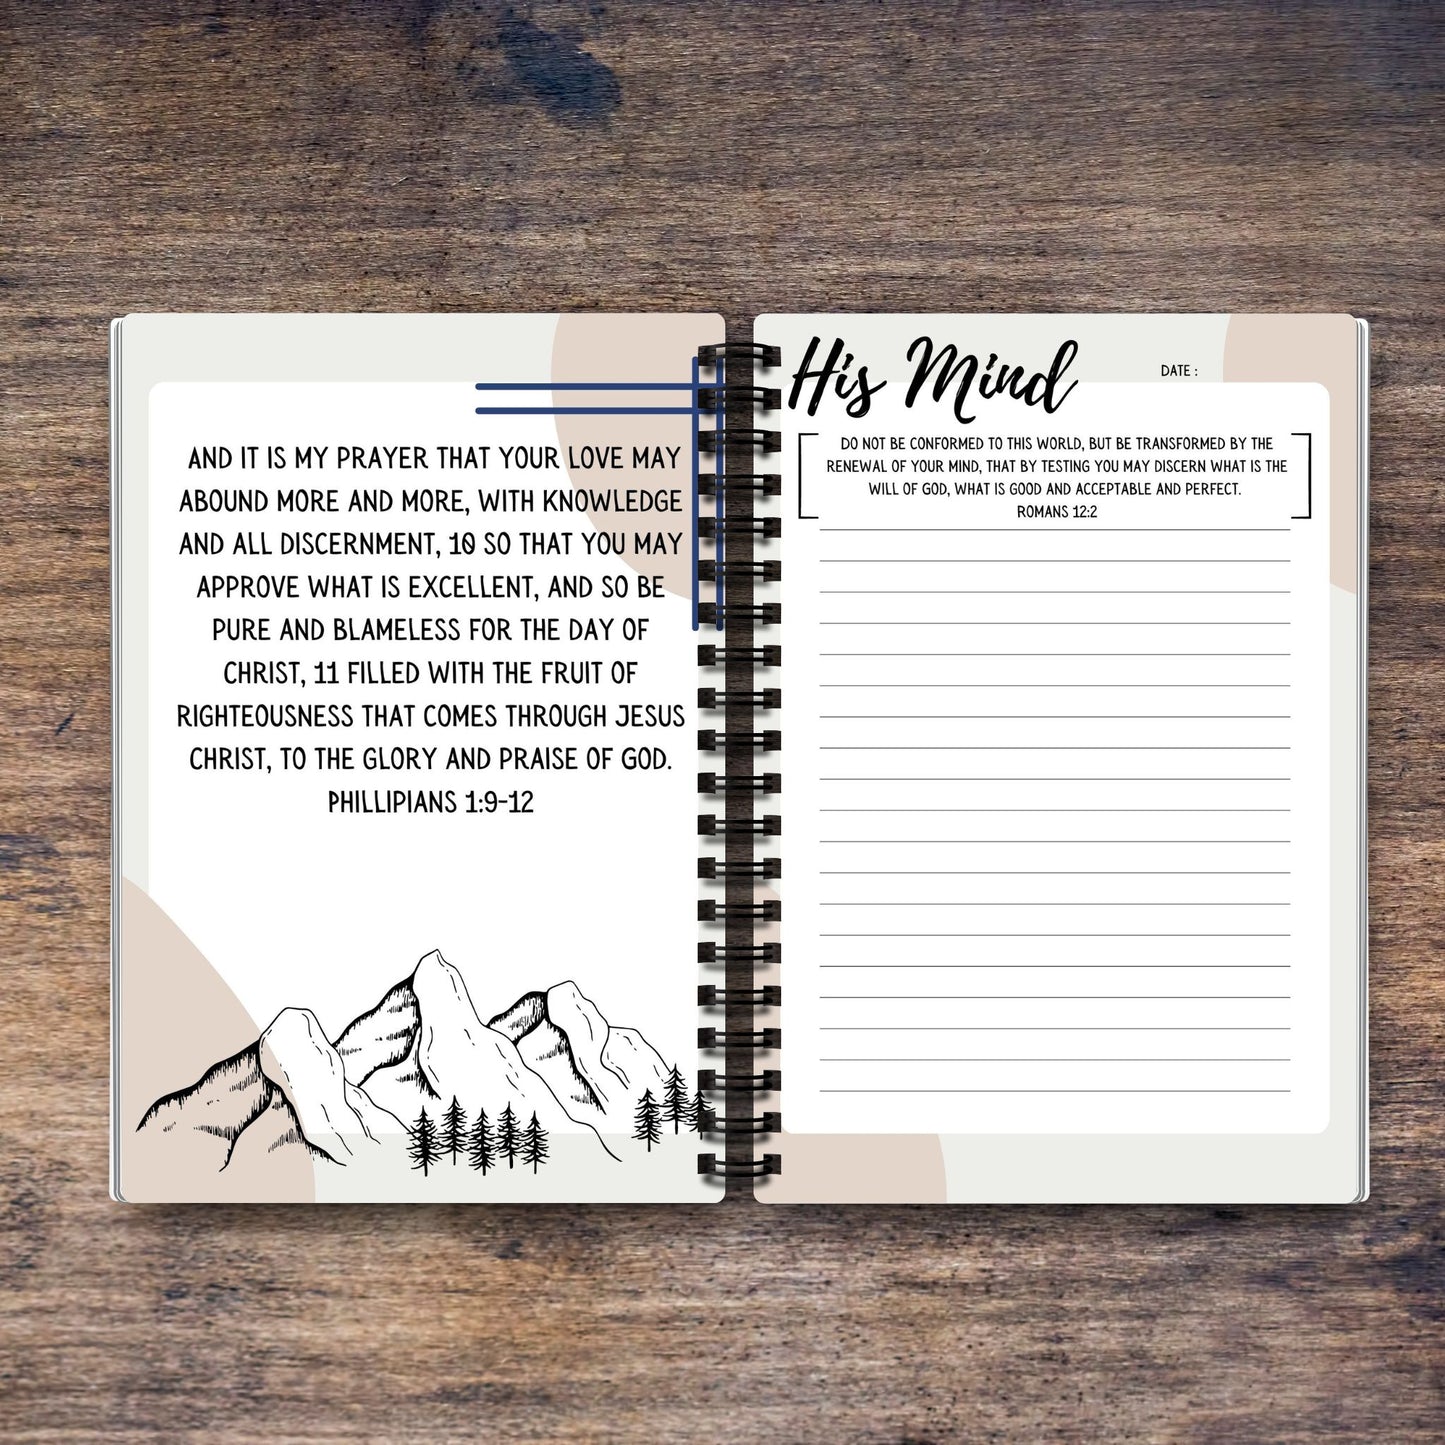 AND IT IS MY PRAYER THAT YOUR LOVE MAY
ABOUND MORE AND MORE, WITH KNOWLEDGE
AND ALL DISCERNMENT, 10 SO THAT YOU MAY
APPROVE WHAT IS EXCELLENT, AND SO BE
PURE AND BLAMELESS FOR THE DAY OF
CHRIST, 11 FILLED WITH THE FRUIT OF
RIGHTEOUSNESS THAT COMES THROUGH JESUS
CHRIST, TO THE GLORY AND PRAISE OF GOD.
PHILLIPIANS 1:9-12
His Mind
DATE :
DO NOT BE CONFORMED TO THIS WORLD, BUT BE TRANSFORMED BY THE
RENEWAL OF YOUR MIND, THAT BY TESTING YOU MAY DISCERN WHAT IS THE
WILL OF GOD, WHAT IS GOOD AND ACCEPTABLE AND PERFECT.
ROMANS 12:2